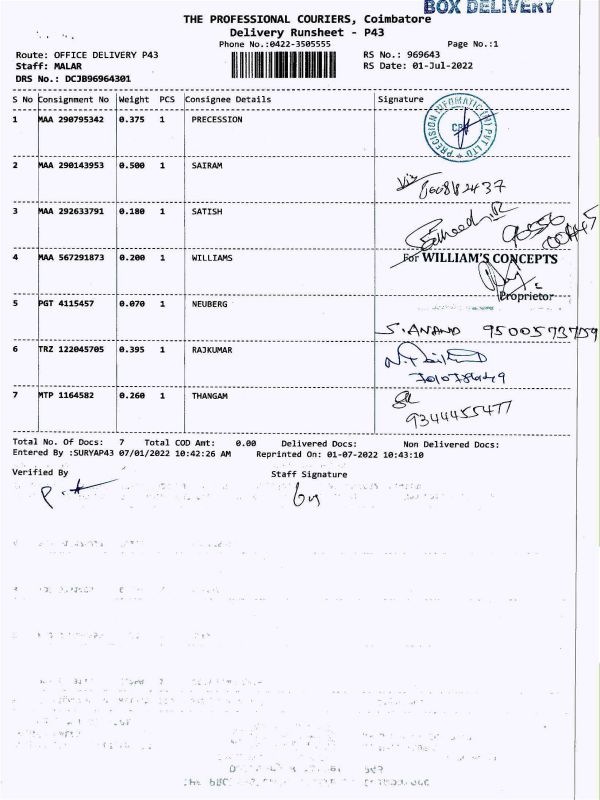 BOX DELIVERY
THE PROFESSIONAL COURIERS, Coimbatore
Delivery Runsheet - P43
Phone No.:0422-3505555 Page No.:1
Route: OFFICE DELIVERY P43 RS No.: 969643
Staff: MALAR RS Date: 01-Jul-2022
DRS No.: DCJB96964301
S No Consignment No Weight PCS Consignee Details Signature
1 MAA 290795342 0.375 1 PRECESSION
PRECISION INFOMATIC (M) PVT LTD
CBE
2 MAA 290143953 0.500 1 SAIRAM
3 MAA 292633791 0.180 1 SATISH
4 MAA 567291873 0.200 1 WILLIAMS
For WILLIAM'S CONCEPTS
Proprietor
5 PGT 4115457 0.070 1 NEUBERG
S. ANAND 9500573759
6 TRZ 122045705 0.395 1 RAJKUMAR
7 MTP 1164582 0.260 1 THANGAM
9344455477
Total No. Of Docs: 7 Total COD Amt: 0.00 Delivered Docs: Non Delivered Docs:
Entered By :SURYAP43 07/01/2022 10:42:26 AM Reprinted On: 01-07-2022 10:43:10
Verified By Staff Signature